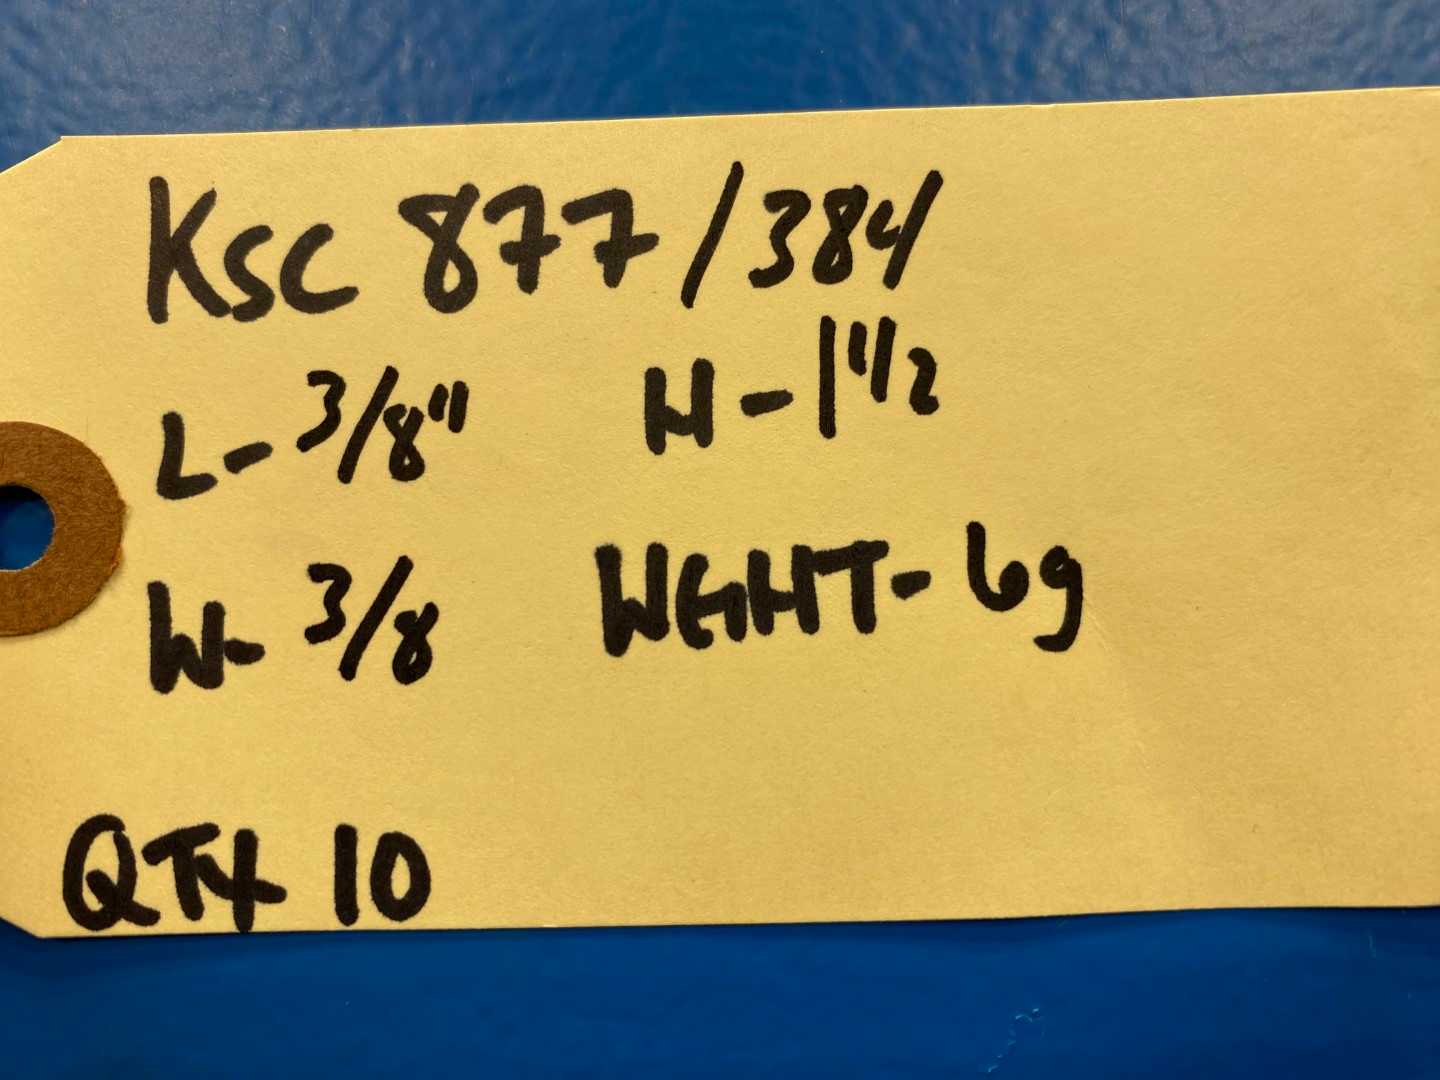 KSC 877/384
L-3/8" H-1"1/2
W-3/8 WEGHT-6g
QTY 10